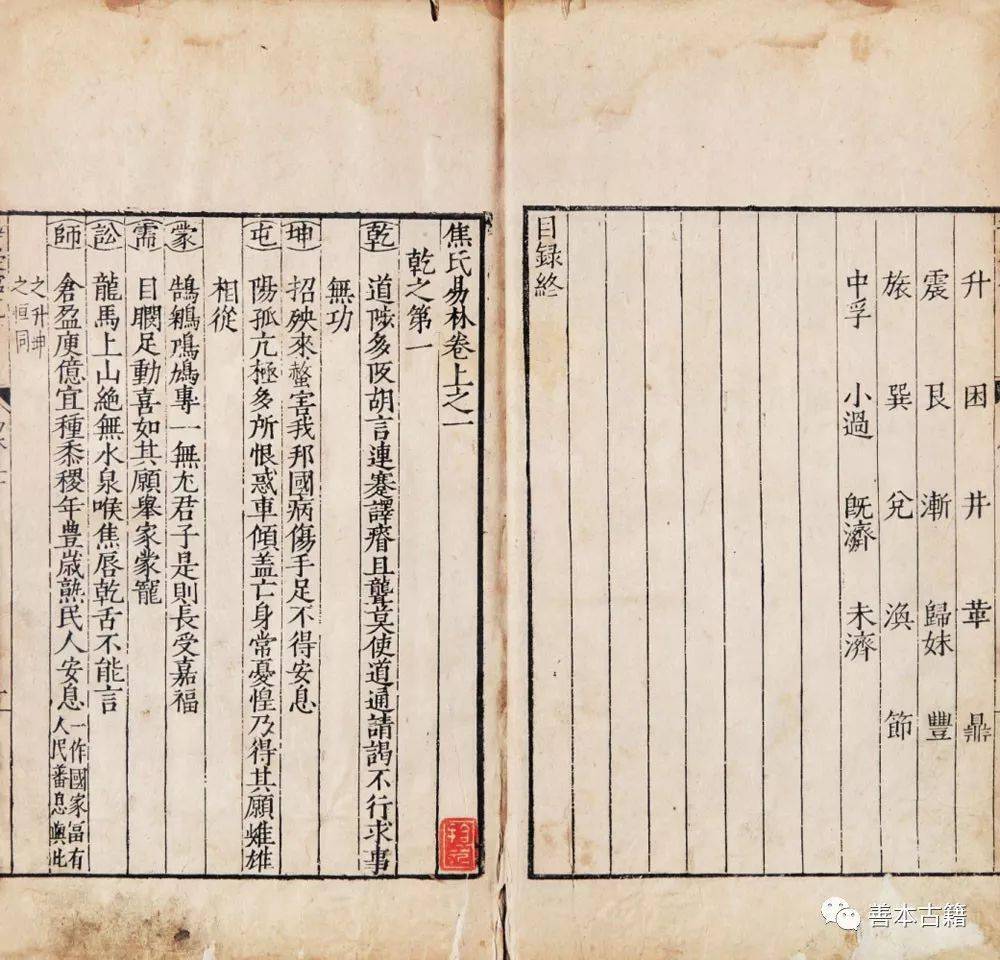 升　困　井　革　鼎
震　艮　漸　歸妹　豐
旅　巽　兌　渙　節
中孚　小過　旣濟　未濟
目録終
焦氏易林卷上之一
乾之第一
乾　道陟多阪胡言連蹇譯瘖且聾莫使道通請謁不行求事
無功
坤　招殃來螫害我邦國病傷手足不得安息
屯　陽孤亢極多所恨惑車傾盖亡身常憂惶乃得其願雌雄
相從
蒙　鵠鵴鳲鳩專一無尤君子是則長受嘉福
需　目瞤足動喜如其願舉家蒙寵
訟　龍馬上山絶無水泉喉焦唇乾舌不能言
師　倉盈庾億宜種黍稷年豊歳熟民人安息一作國家富有人民蕃息與此
之升坤
之恒同
善本古籍